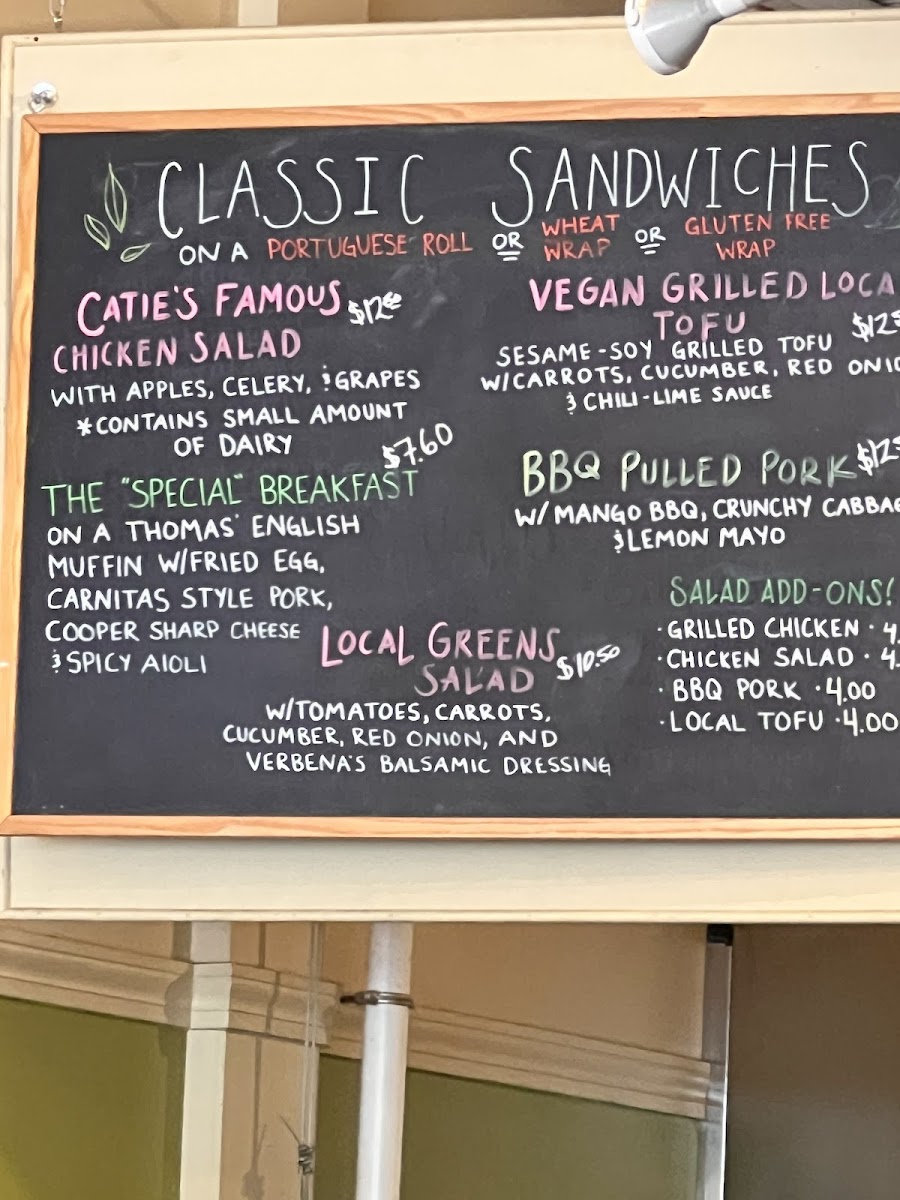 CLASSIC SANDWICHES
ON A PORTUGUESE ROLL OR WHEAT WRAP OR GLUTEN FREE WRAP
CATIE'S FAMOUS
CHICKEN SALAD
WITH APPLES, CELERY, & GRAPES
*CONTAINS SMALL AMOUNT
OF DAIRY
$7.60
THE "SPECIAL" BREAKFAST
ON A THOMAS' ENGLISH
MUFFIN W/FRIED EGG,
CARNITAS STYLE PORK,
COOPER SHARP CHEESE
& SPICY AIOLI
VEGAN GRILLED
TOFU
SESAME-SOY GRILLED TOFU
W/CARROTS, CUCUMBER, RED
& CHILI-LIME SAUCE
BBQ PULLED PORK
W/ MANGO BBQ, CRUNCHY
& LEMON MAYO
LOCAL GREENS
SALAD $10.50
W/TOMATOES, CARROTS,
CUCUMBER, RED ONION, AND
VERBENA'S BALSAMIC DRESSING
SALAD ADD-ONS!
· GRILLED CHICKEN ·
· CHICKEN SALAD ·
· BBQ PORK · 4.00
· LOCAL TOFU · 4.00